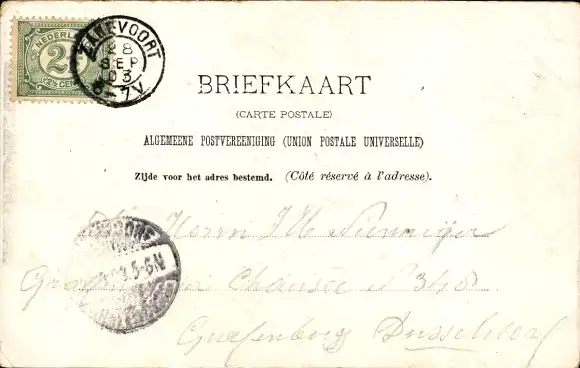 NEDERLAND
2½
(2½ CENT)
ZANDVOORT
28
SEP
03
6-7V
BRIEFKAART
(CARTE POSTALE)
ALGEMEENE POSTVEREENIGING (UNION POSTALE UNIVERSELLE)
Zijde voor het adres bestemd. (Côté réservé à l'adresse).
5-6N
Herrn
Chaussée No 348
Grafenberg Düsseldorf